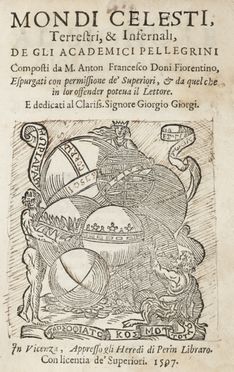 MONDI CELESTI,
Terrestri, & Infernali,
DE GLI ACADEMICI PELLEGRINI
Composti da M. Anton Francesco Doni Fiorentino,
Espurgati con permissione de' Superiori, & da quel che
in lor offender poteua il Lettore.
E dedicati al Clariss. Signore Giorgio Giorgi.
ΚΟΣΜΟ
In Vicenza, Appresso gli Heredi di Perin Libraro.
Con licentia de' Superiori. 1597.